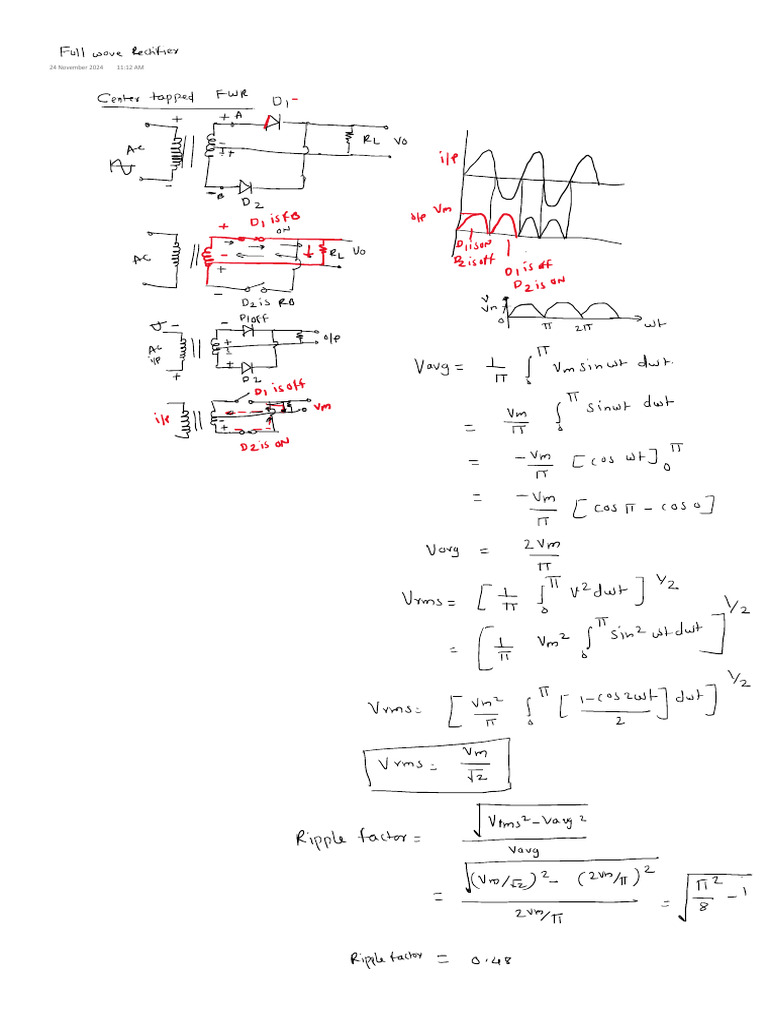 Full wave Rectifier
24 November 2024 11:12 AM
Center tapped FWR
D1
+ + A
AC
RL Vo
- B
D2
D1 is FB
ON
+
AC
RL Vo
+
-
D2 is RB
D1off
- -
AC
i/p
o/p
+ +
D2
D1 is off
i/p
Vm
+
D2 is ON
i/p
o/p Vm
D1 is on
D2 is off
D1 is off
D2 is ON
V
Vm
0 π 2π wt
Vavg = 1/π ∫₀^π Vm sinwt dwt.
= Vm/π ∫₀^π sinwt dwt
= -Vm/π [cos wt]₀^π
= -Vm/π [cos π - cos 0]
Vavg = 2Vm/π
Vrms = [1/π ∫₀^π V² dwt]^1/2
= [1/π Vm² ∫₀^π sin² wt dwt]^1/2
Vrms = [Vm²/π ∫₀^π [1-cos2wt/2] dwt]^1/2
Vrms = Vm/√2
Ripple factor = √Vrms² - Vavg²/Vavg
= √(Vm/√2)² - (2Vm/π)²/2Vm/π = √π²/8 - 1
Ripple factor = 0.48